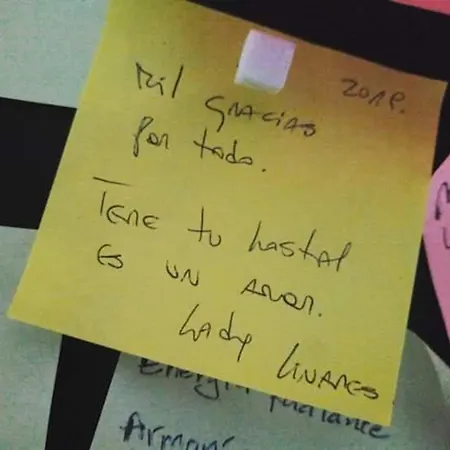 Mil gracias
por todo.
Tene tu hostal
es un amor.
Lady Linares
Energía radiante